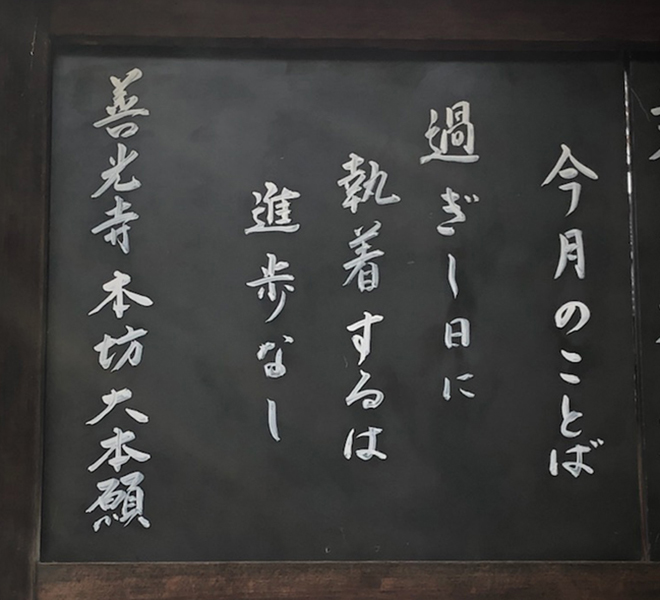 今月のことば
過ぎし日に
執着するは
進歩なし
善光寺 本坊 大本願